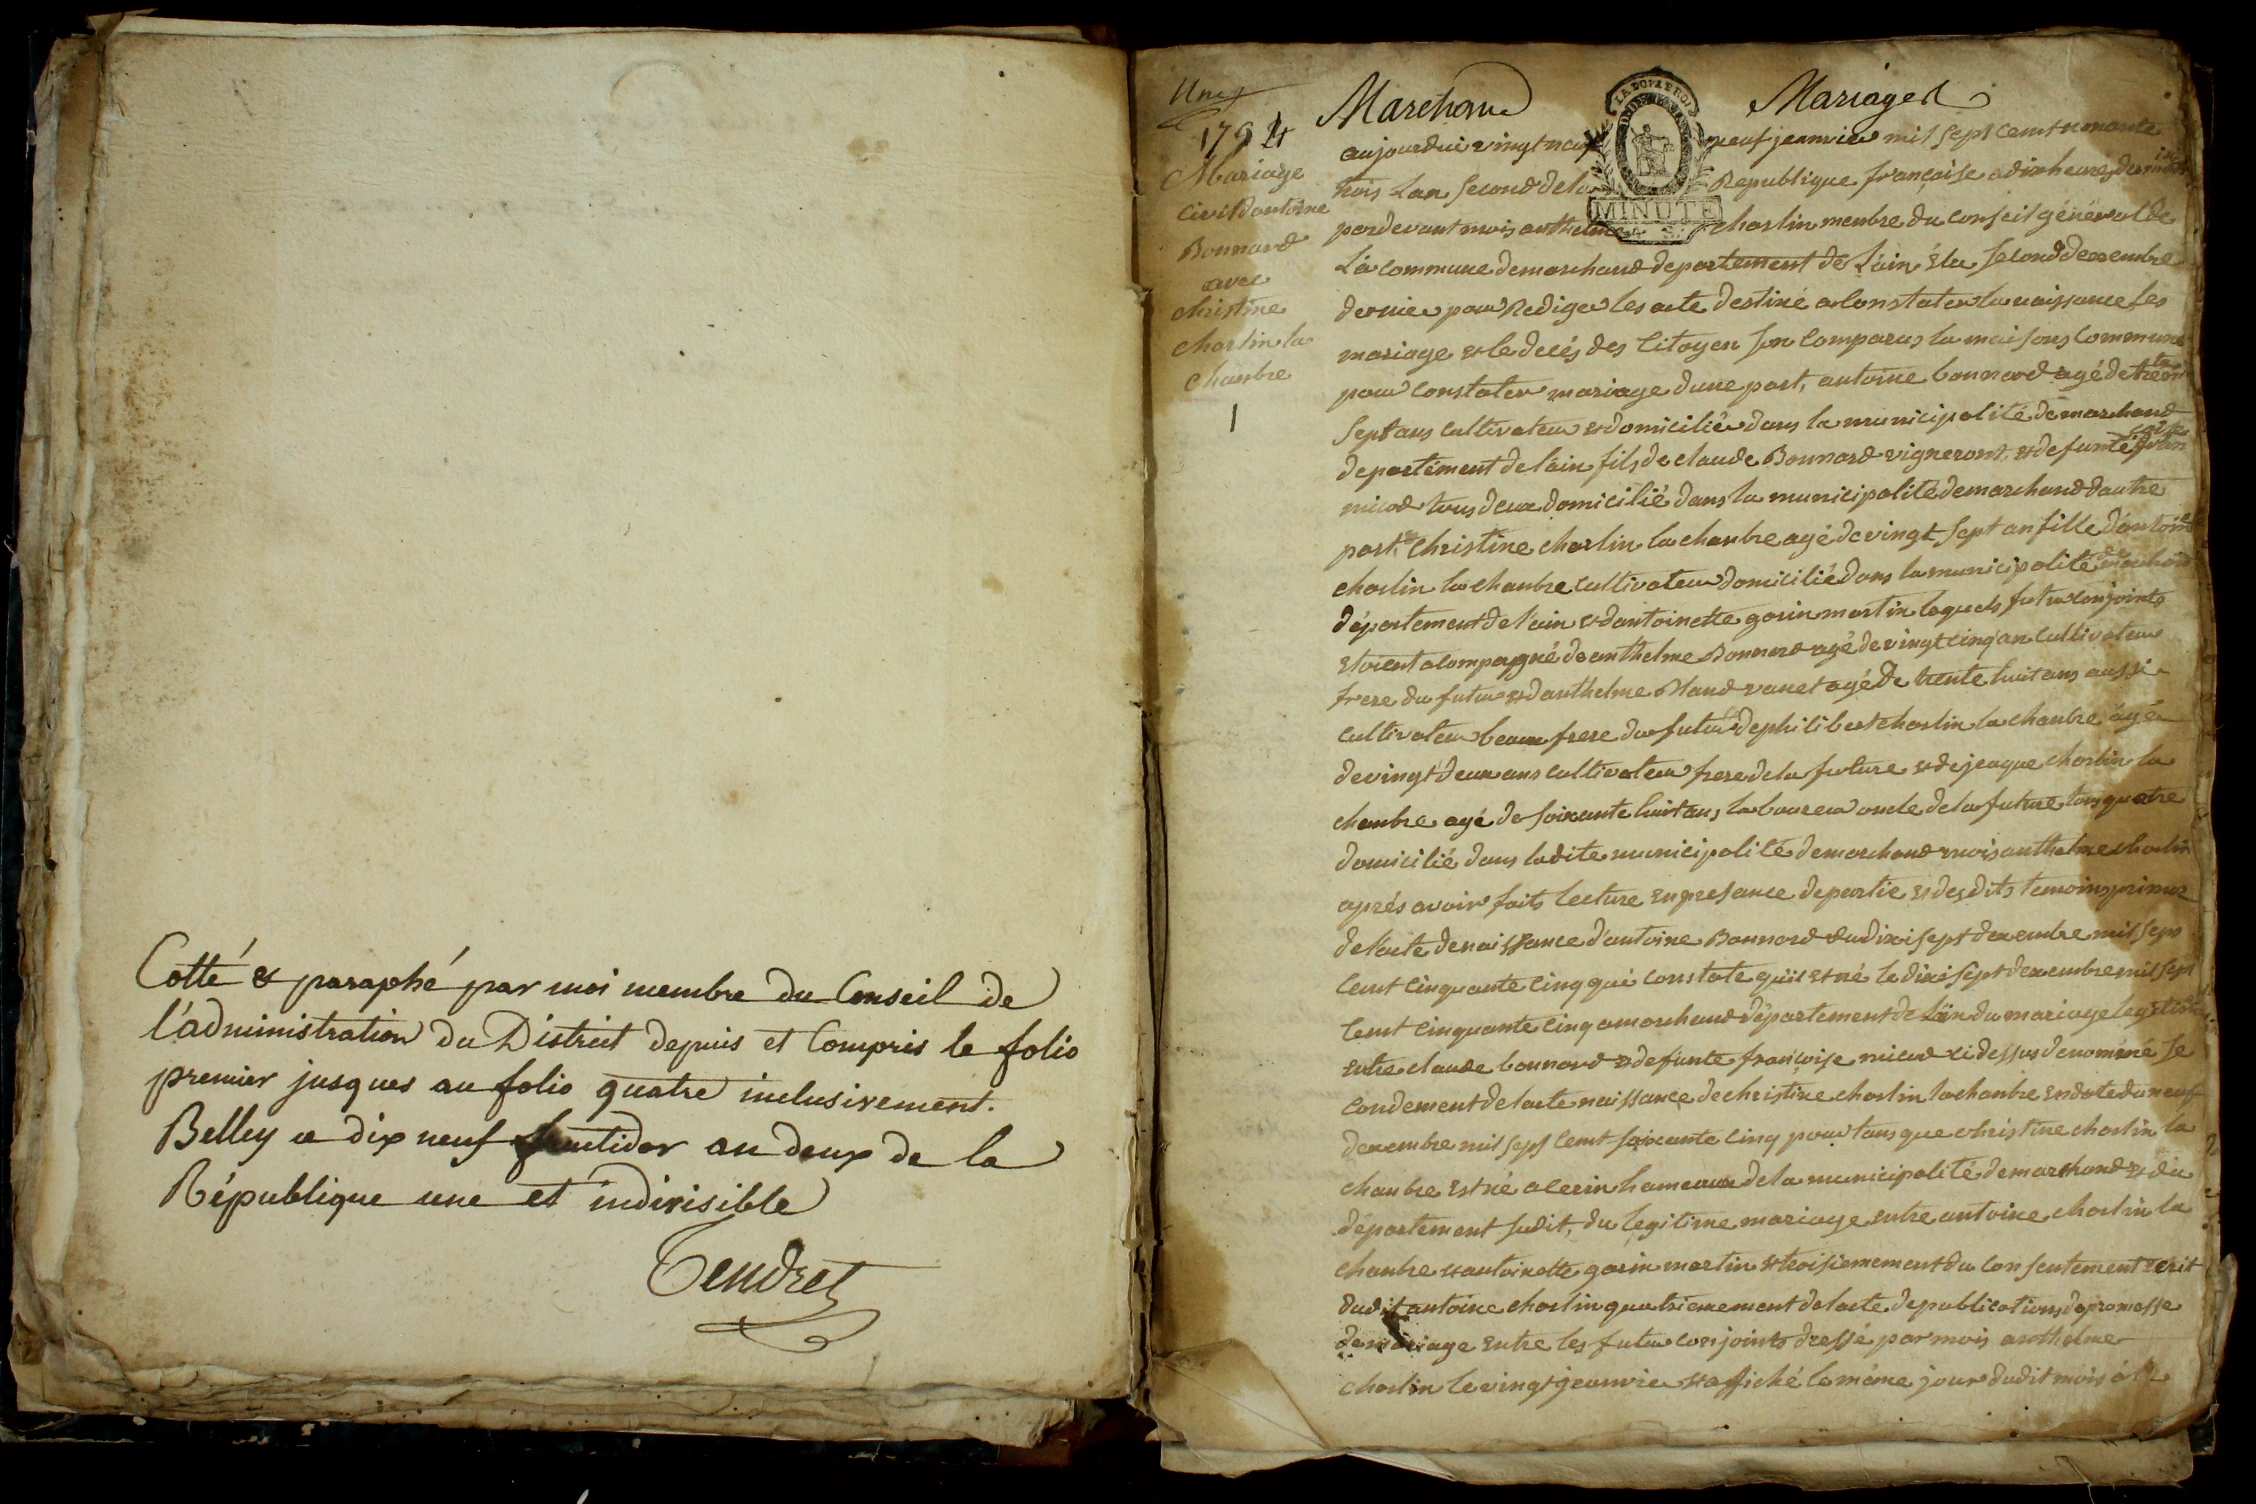 Cotté & paraphé par moi membre du Conseil de
l'administration du District depuis et Compris le folio
premier jusques au folio quatre inclusivement.
Belley ce dix neuf fructidor an deux de la
République une et indivisible
Tendret
Une
1794
Mariage
civil d'antoine
Bonnard
avec
christine
charlin la
chanbre
1
Marchand
Mariages
MINUTE
aujourdui vingt neuf neuf jeanvier mil sept cent nonante
trois lan second de la Republique française a dix heures du matin
pardevant mois anthelme charlin menbre du conseil général de
La commune de marchand departement de Lain élu second decembre
dernier pour Rediger les acte destiné a constater la naissance les
mariage & le decés des Citoyen son comparus la maisons commune
pour constater mariage dune part, antoine bonnard agé de trente
sept ans cultivateur & domicilié dans la municipalité de marchand
departement de lain fils de claude Bonnard vigneront, & defunte
micod tous deux domicilié dans la municipalité demarchand dautre
part, christine charlin la chanbre agé de vingt sept an fille dantoine
charlin la chanbre cultivateur domicilié dans la municipalité de marchand
département de l'ain & dantoinette gorin martin lequels futur conjoints
etoient acompagné de anthelme Bonnard agé de vingt cinq an cultivateur
frere du futur & danthelme vanet agé de trente huit ans aussi
cultivateur beau frere du futur de philibert charlin la chanbre agé
de vingt deux ans cultivateur frere de la future & de jeaque charlin la
chambre agé de soixante huit ans laboureur oncle de la future tous quatre
domicilié dans ladite municipalité demarchand mois anthelme charlin
aprés avoir faits lecture en presance de partie & desdits temoins primo
de lacte de naissance d'antoine Bonnard du dixisept decembre mil sept
cent cinquante cinq qui constate quil et né le dixi sept decembre mil sept
cent cinquante cinq a marchand département de Lain du mariage legitime
entre claude bonnard & defunte françoise micod ci dessus denommé se
condement de lacte naissance de christine charlin la chanbre en date du neuf
decembre mil sept cent soixante cinq portans que christine charlin la
chanbre est né a cerin hameaux de la municipalité demarchand & du
département sudit, du legitime mariage entre antoine charlin la
chanbre & antoinette gorin martin & troisiemement du consentement ecrit
dudit antoine charlin quatriemement de lacte de publications de promesse
de mariage entre les futur conjoints dressé par mois anthelme
charlin le vingt jeanvier & affiché le même jour dudit mois à la